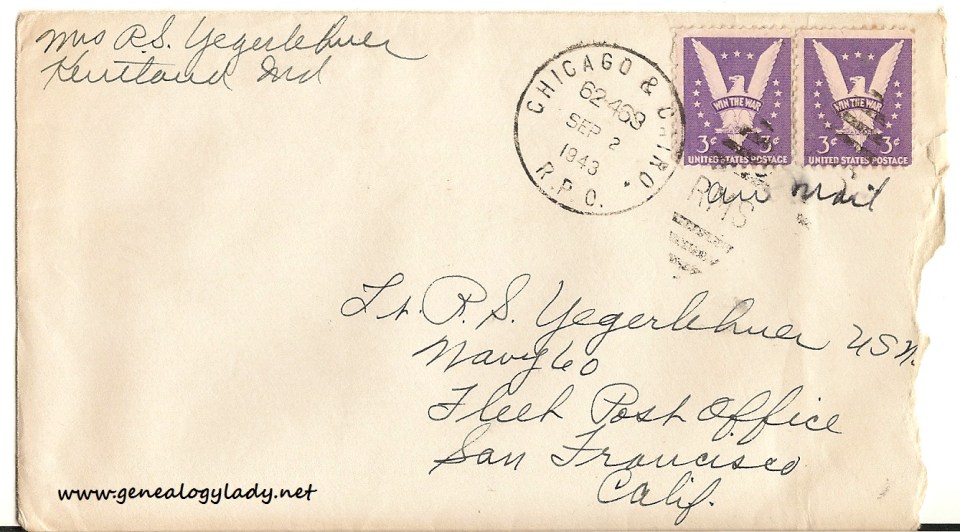 Mrs R.S. Yegerlehner
Kentland Ind
CHICAGO & CAIRO
62-463
SEP 2
1943
R.P.O.
WIN THE WAR
3¢ 3¢
UNITED STATES POSTAGE
WIN THE WAR
3¢ 3¢
UNITED STATES POSTAGE
RMS
Air Mail
Lt. R.S. Yegerlehner USN.
Navy 60
Fleet Post Office
San Francisco
Calif.
www.genealogylady.net